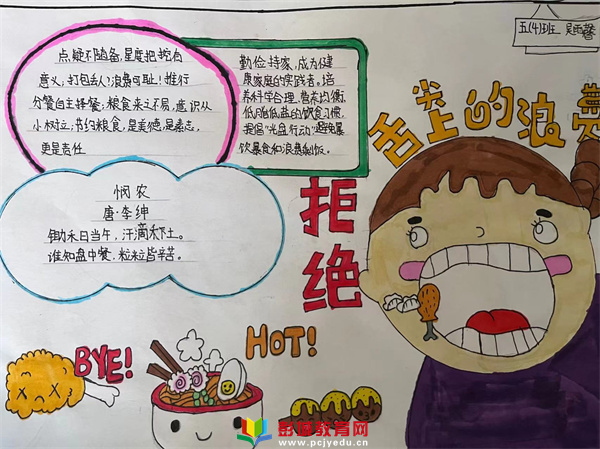 五(4)班 吴雨馨
舌尖上的浪费
拒绝
把控自
意义,打包丢人?浪费可耻!推行
分餐自主择餐,粮食来之不易,意识从
小树立,节约粮食,是美德,是素志,
更是责任
勤俭持家,成为健
康家庭的实践者。培
养科学合理、营养均衡、
低脂低盐的饮食习惯,
提倡“光盘行动”避免暴
饮暴食和浪费剩饭。
悯农
唐·李绅
锄禾日当午,汗滴禾下土。
谁知盘中餐,粒粒皆辛苦。
BYE!
HOT!
彭城教育网
www.pcjyedu.cn